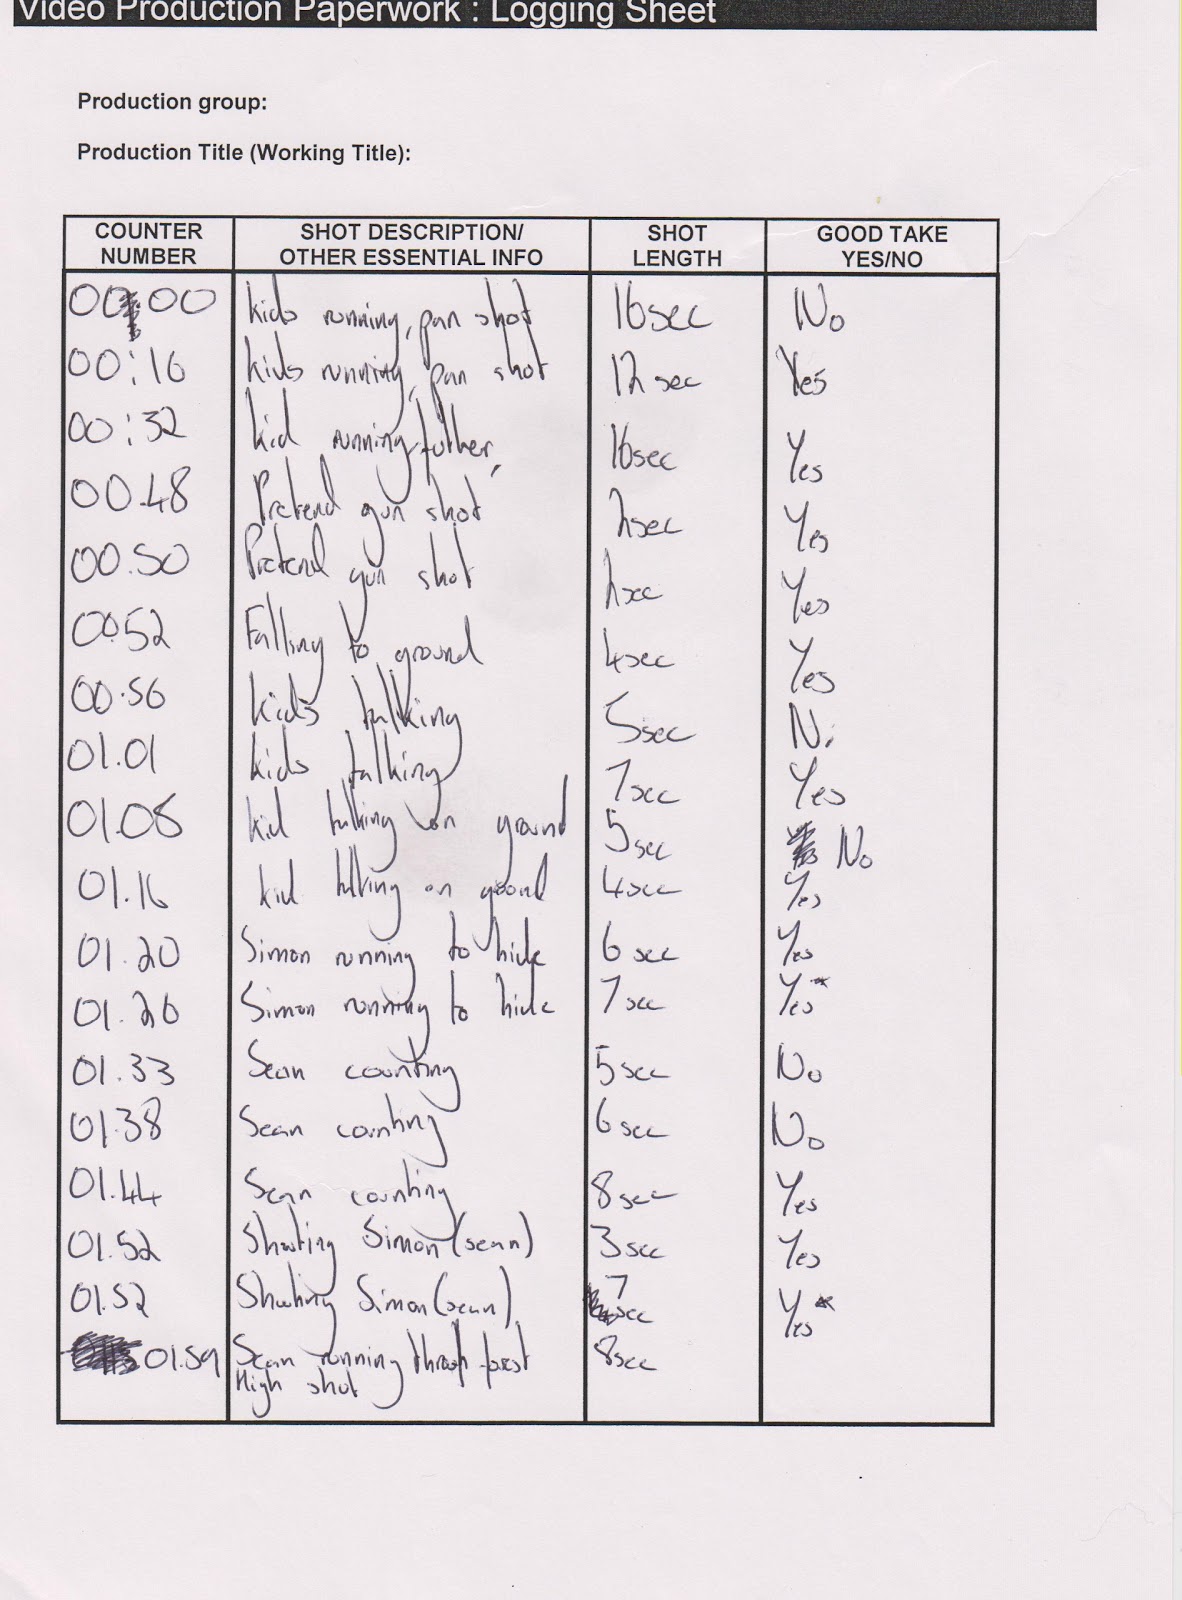 Video Production Paperwork : Logging Sheet
Production group:
Production Title (Working Title):
COUNTER NUMBER SHOT DESCRIPTION/ OTHER ESSENTIAL INFO SHOT LENGTH GOOD TAKE YES/NO
00:00 kids running, pan shot 16sec No
00:16 kids running, pan shot 12 sec Yes
00:32 kid running futher, 16sec Yes
00.48 Pretend gun shot 2sec Yes
00.50 Pretend gun shot 2sec Yes
00.52 Falling to ground 4sec Yes
00.56 kids talking 5sec No
01.01 kids talking 7sec Yes
01.08 kid talking on ground 5sec No
01.16 kid talking on ground 4sec Yes
01.20 Simon running to hide 6 sec Yes
01.26 Simon running to hide 7sec Yes*
01.33 Sean counting 5sec No
01.38 Sean counting 6sec No
01.44 Sean counting 8sec Yes
01.52 Shooting Simon (sean) 3sec Yes
01.52 Shooting Simon (sean) 7 sec Yes*
01.59 Sean running through forest 8sec
High shot